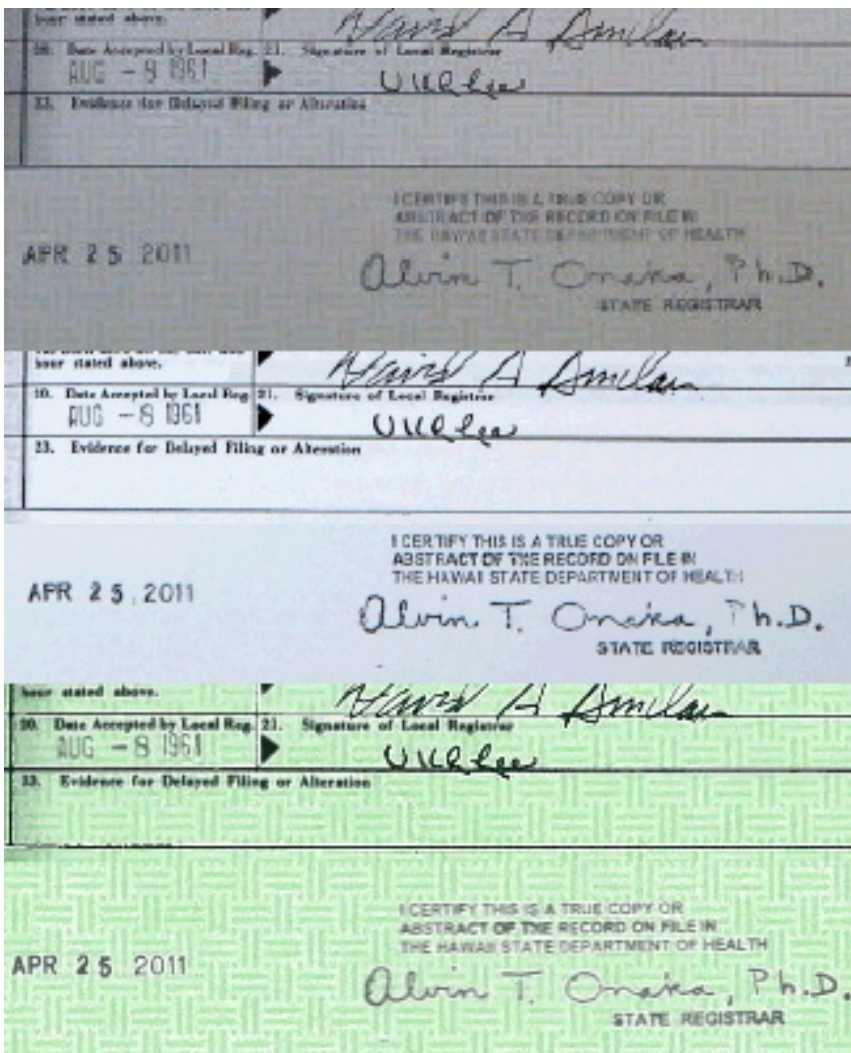 hour stated above.
David A Sinclair
20. Date Accepted by Local Reg. 21. Signature of Local Registrar
AUG -8 1961
UKLlee
23. Evidence for Delayed Filing or Alteration
I CERTIFY THIS IS A TRUE COPY OR
ABSTRACT OF THE RECORD ON FILE IN
THE HAWAII STATE DEPARTMENT OF HEALTH
APR 25 2011
Alvin T. Onaka, Ph.D.
STATE REGISTRAR
hour stated above.
David A Sinclair
20. Date Accepted by Local Reg. 21. Signature of Local Registrar
AUG -8 1961
UKLlee
23. Evidence for Delayed Filing or Alteration
I CERTIFY THIS IS A TRUE COPY OR
ABSTRACT OF TXE RECORD ON FILE IN
THE HAWAII STATE DEPARTMENT OF HEALTH
APR 25, 2011
Alvin T. Onaka, Ph.D.
STATE REGISTRAR
hour stated above.
David A Sinclair
20. Date Accepted by Local Reg. 21. Signature of Local Registrar
AUG -8 1961
UKLlee
23. Evidence for Delayed Filing or Alteration
I CERTIFY THIS IS A TRUE COPY OR
ABSTRACT OF TXE RECORD ON FILE IN
THE HAWAII STATE DEPARTMENT OF HEALTH
APR 25 2011
Alvin T. Onaka, Ph.D.
STATE REGISTRAR